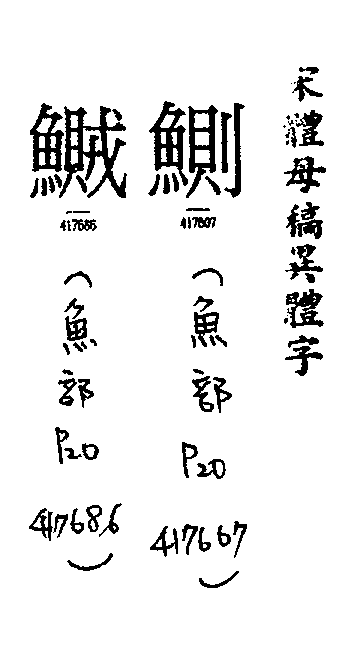 宋體母稿異體字
鰂
(魚部
P20
417667)
鱡
417686
(魚部
P20
417686)